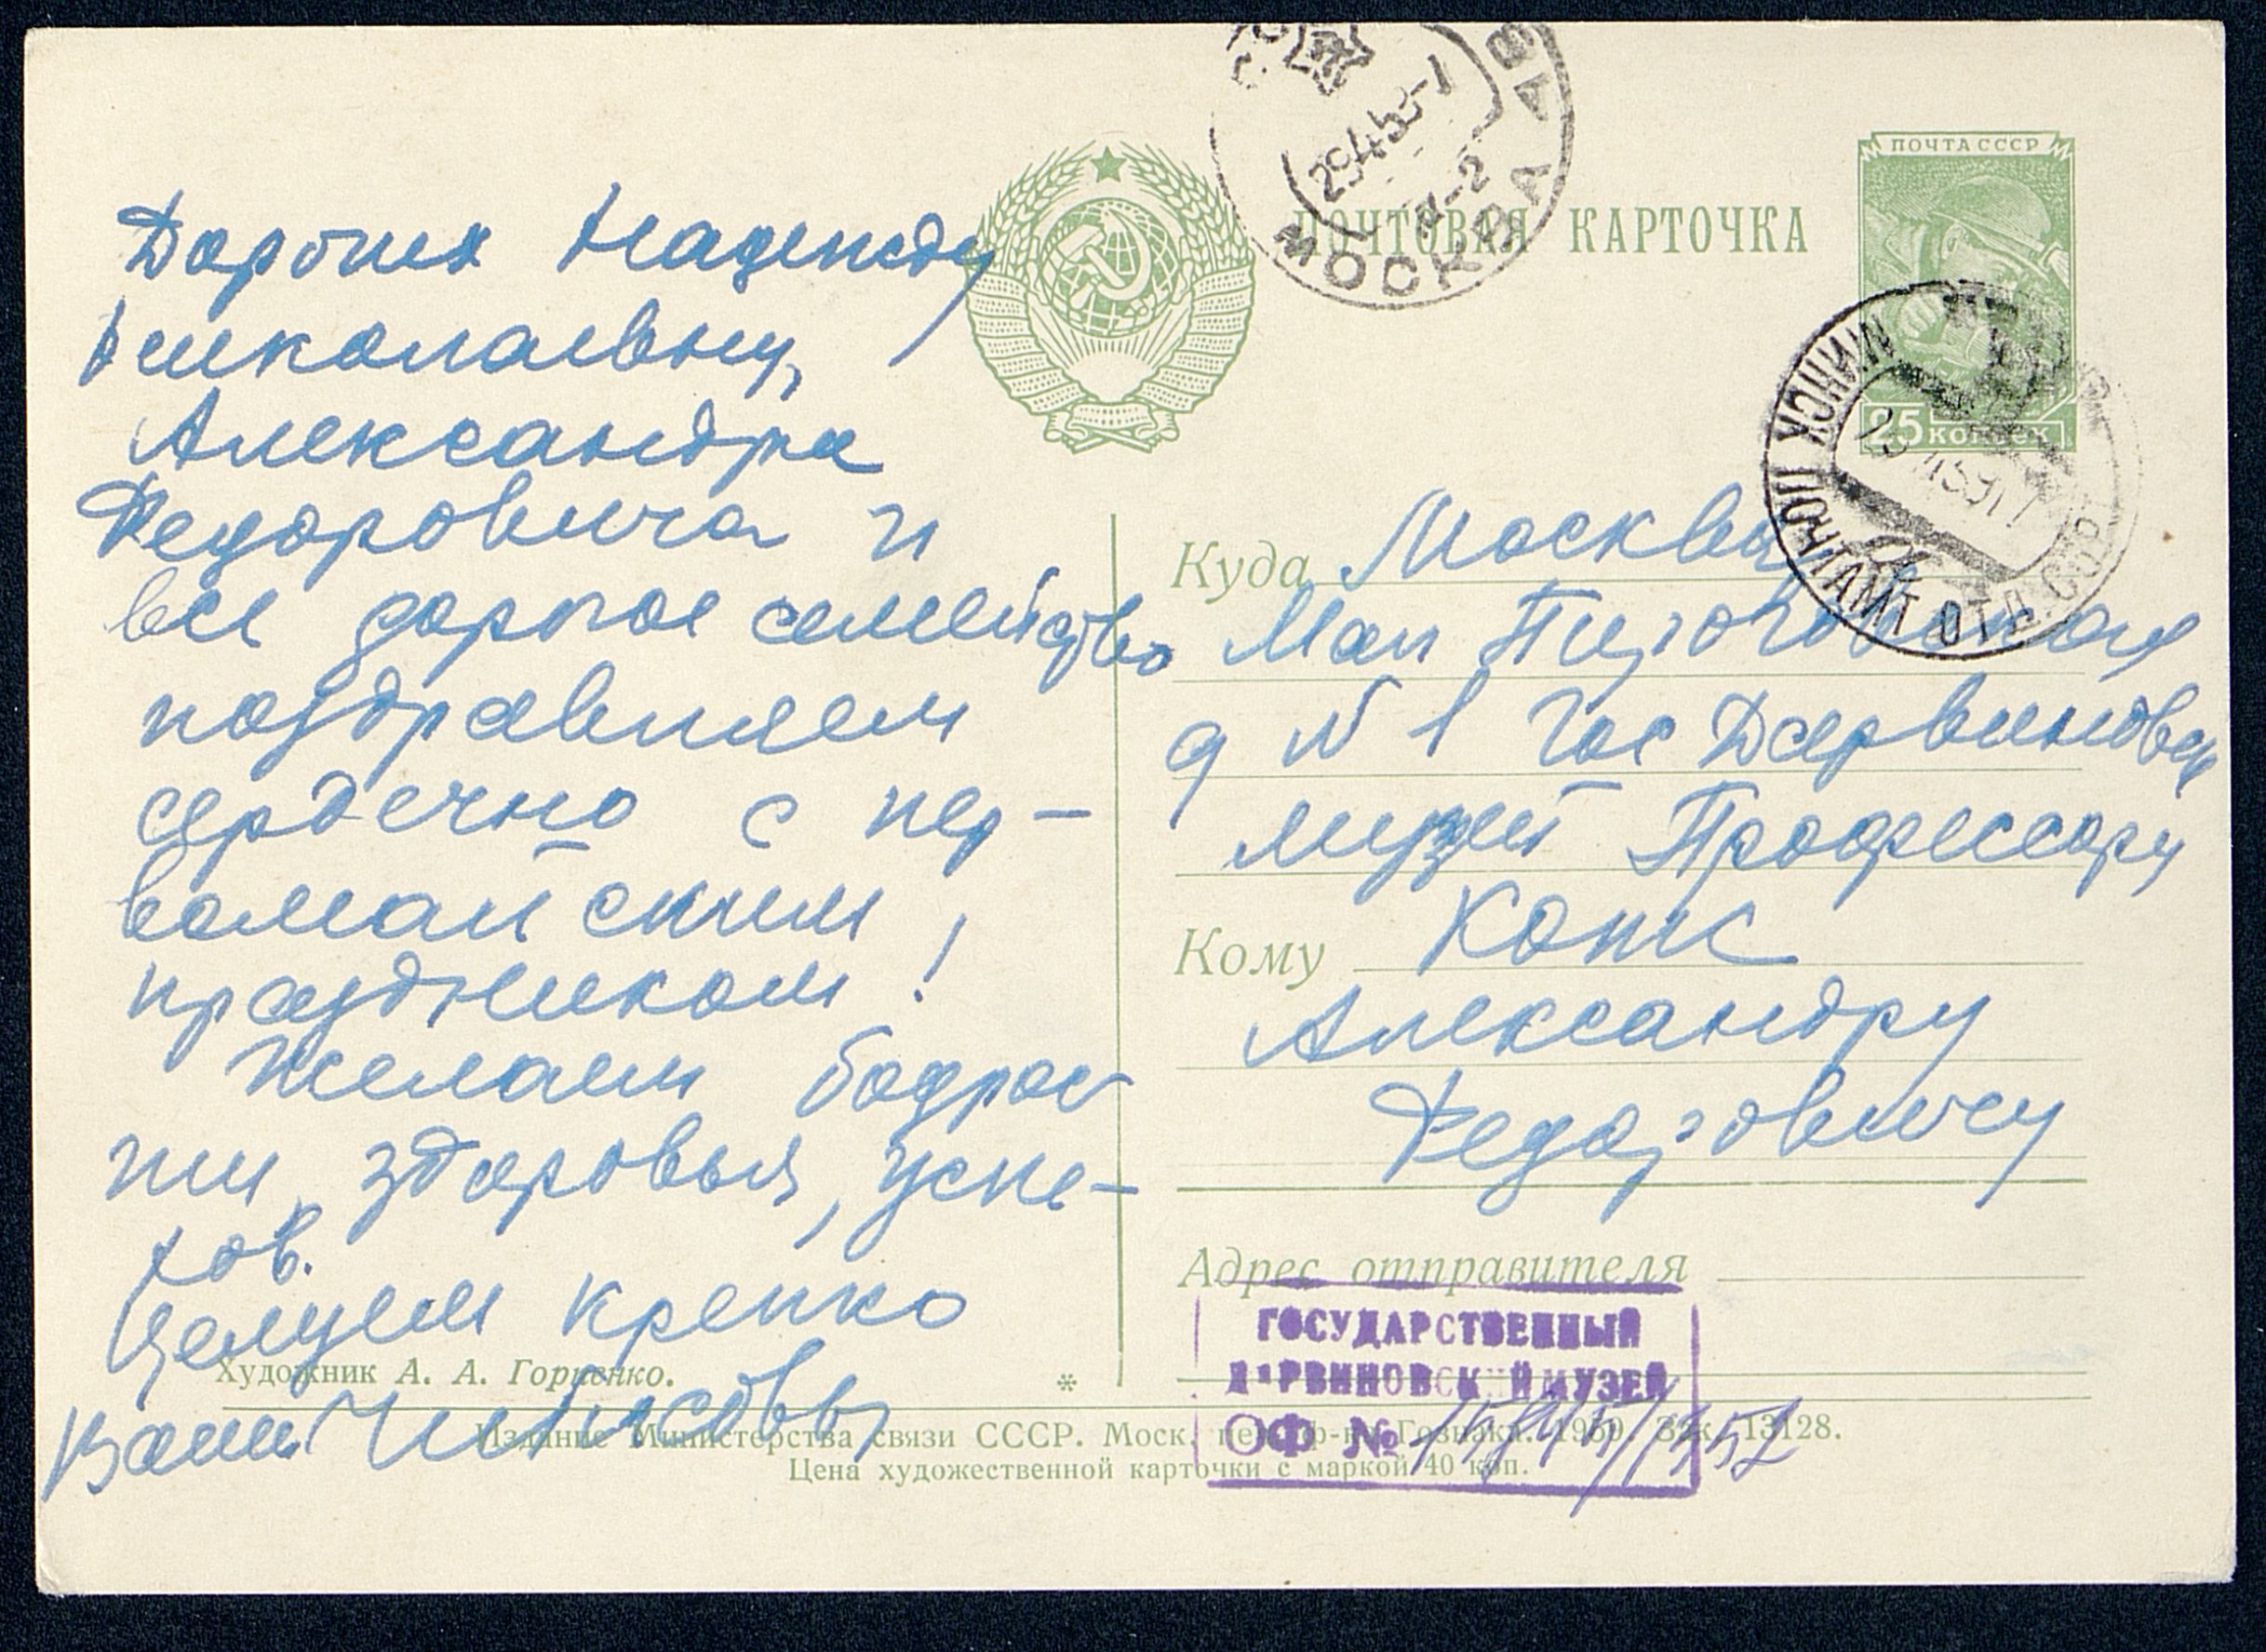 Дорогих Надежду
Николаевну,
Александра
Федоровича и
все дорогое семейство
поздравляем
сердечно с пер-
вомайским
праздником!
Желаем бодрос
ти, здоровья, успе-
хов.
Целуем крепко
Ваши
ПОЧТОВАЯ КАРТОЧКА
МОСКВА
ПОЧТА СССР
25 КОПЕЕК
МИНСК ПОЧТАМТ ОТД.
Куда Москва
Мал Пироговская
д N 1 Гос Дарвиновск
музей Профессору
Кому Котс
Александру
Федоровичу
Адрес отправителя
ГОСУДАРСТВЕННЫЙ
ДАРВИНОВСКИЙ МУЗЕЙ
ОФ №
Художник А. А. Горпенко.
*
Издание Министерства связи СССР. Моск. печ. ф-ка Гознака. 1959. Зак. 13128.
Цена художественной карточки с маркой 40 коп.